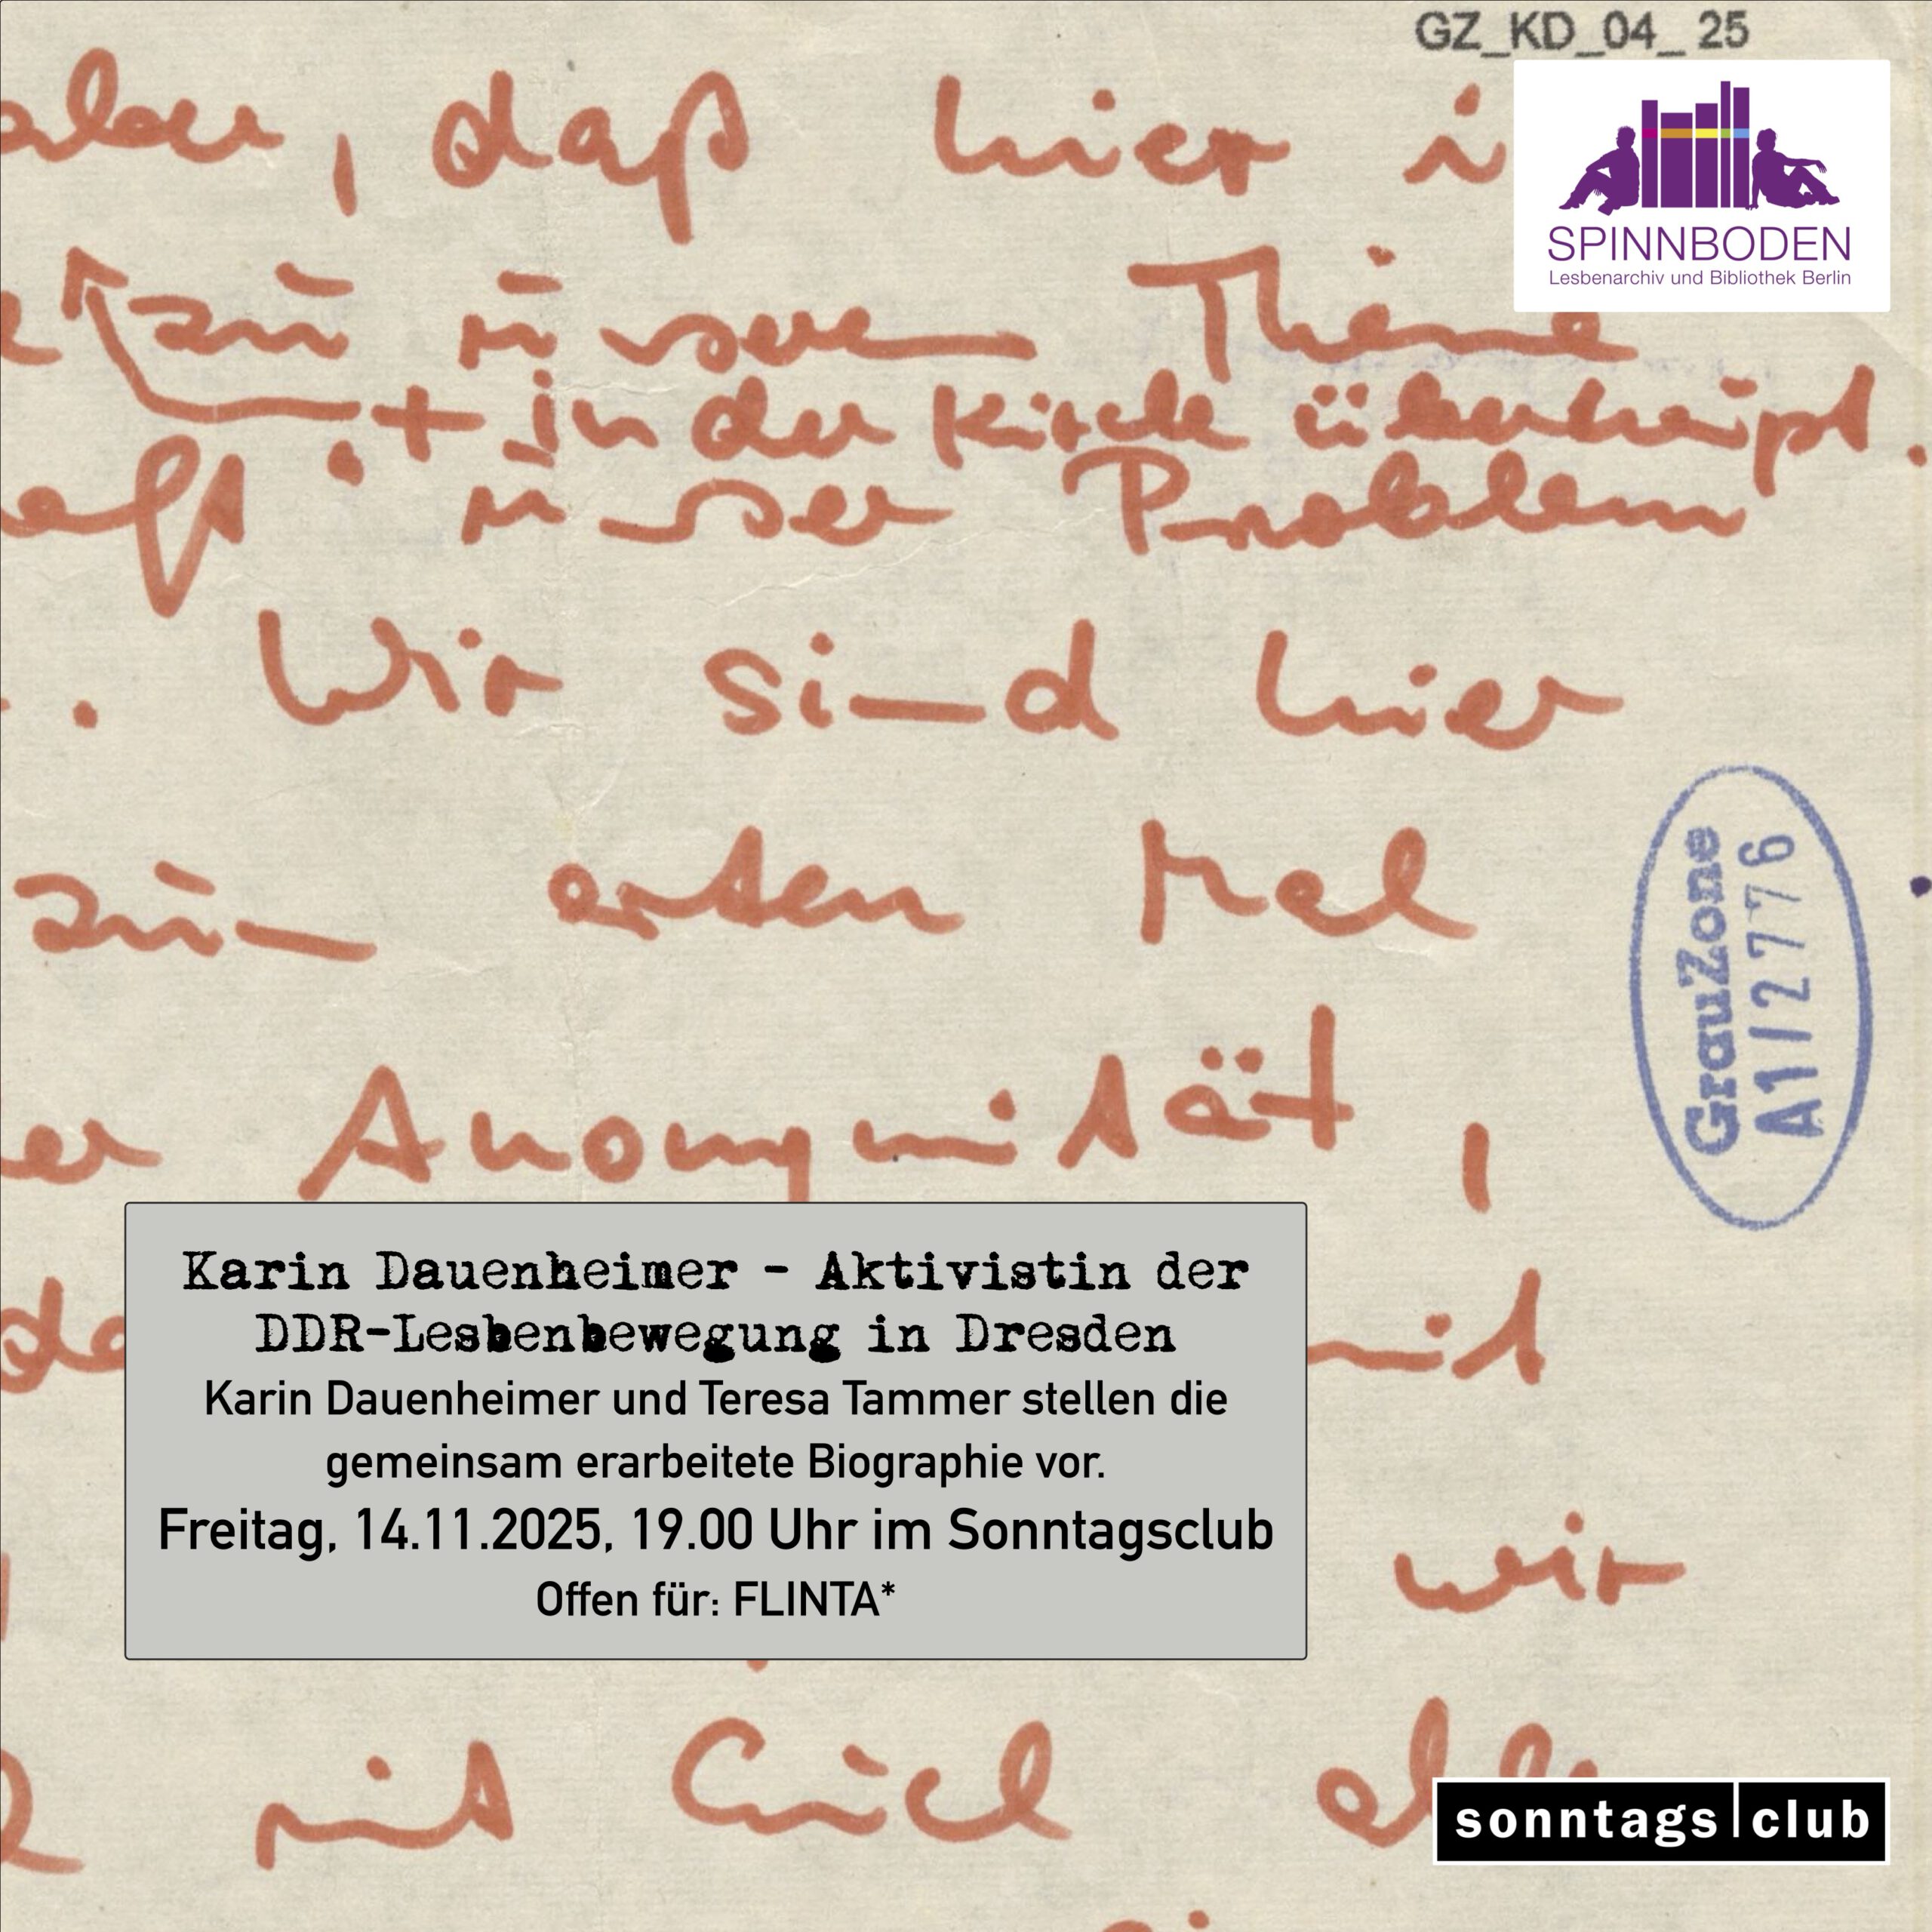 GZ_KD_04_ 25
aben, daß hier i
SPINNBODEN
Lesbenarchiv und Bibliothek Berlin
zu unserem Thema
+ in der Kirche überhaupt.
unser Problem
. Wir sind hier
zum ersten Mal
GrauZone
A1/2776
er Anonymität,
Karin Dauenheimer - Aktivistin der
DDR-Lesbenbewegung in Dresden
Karin Dauenheimer und Teresa Tammer stellen die
gemeinsam erarbeitete Biographie vor.
Freitag, 14.11.2025, 19.00 Uhr im Sonntagsclub
Offen für: FLINTA*
mit
wir
mit Euch
sonntags|club